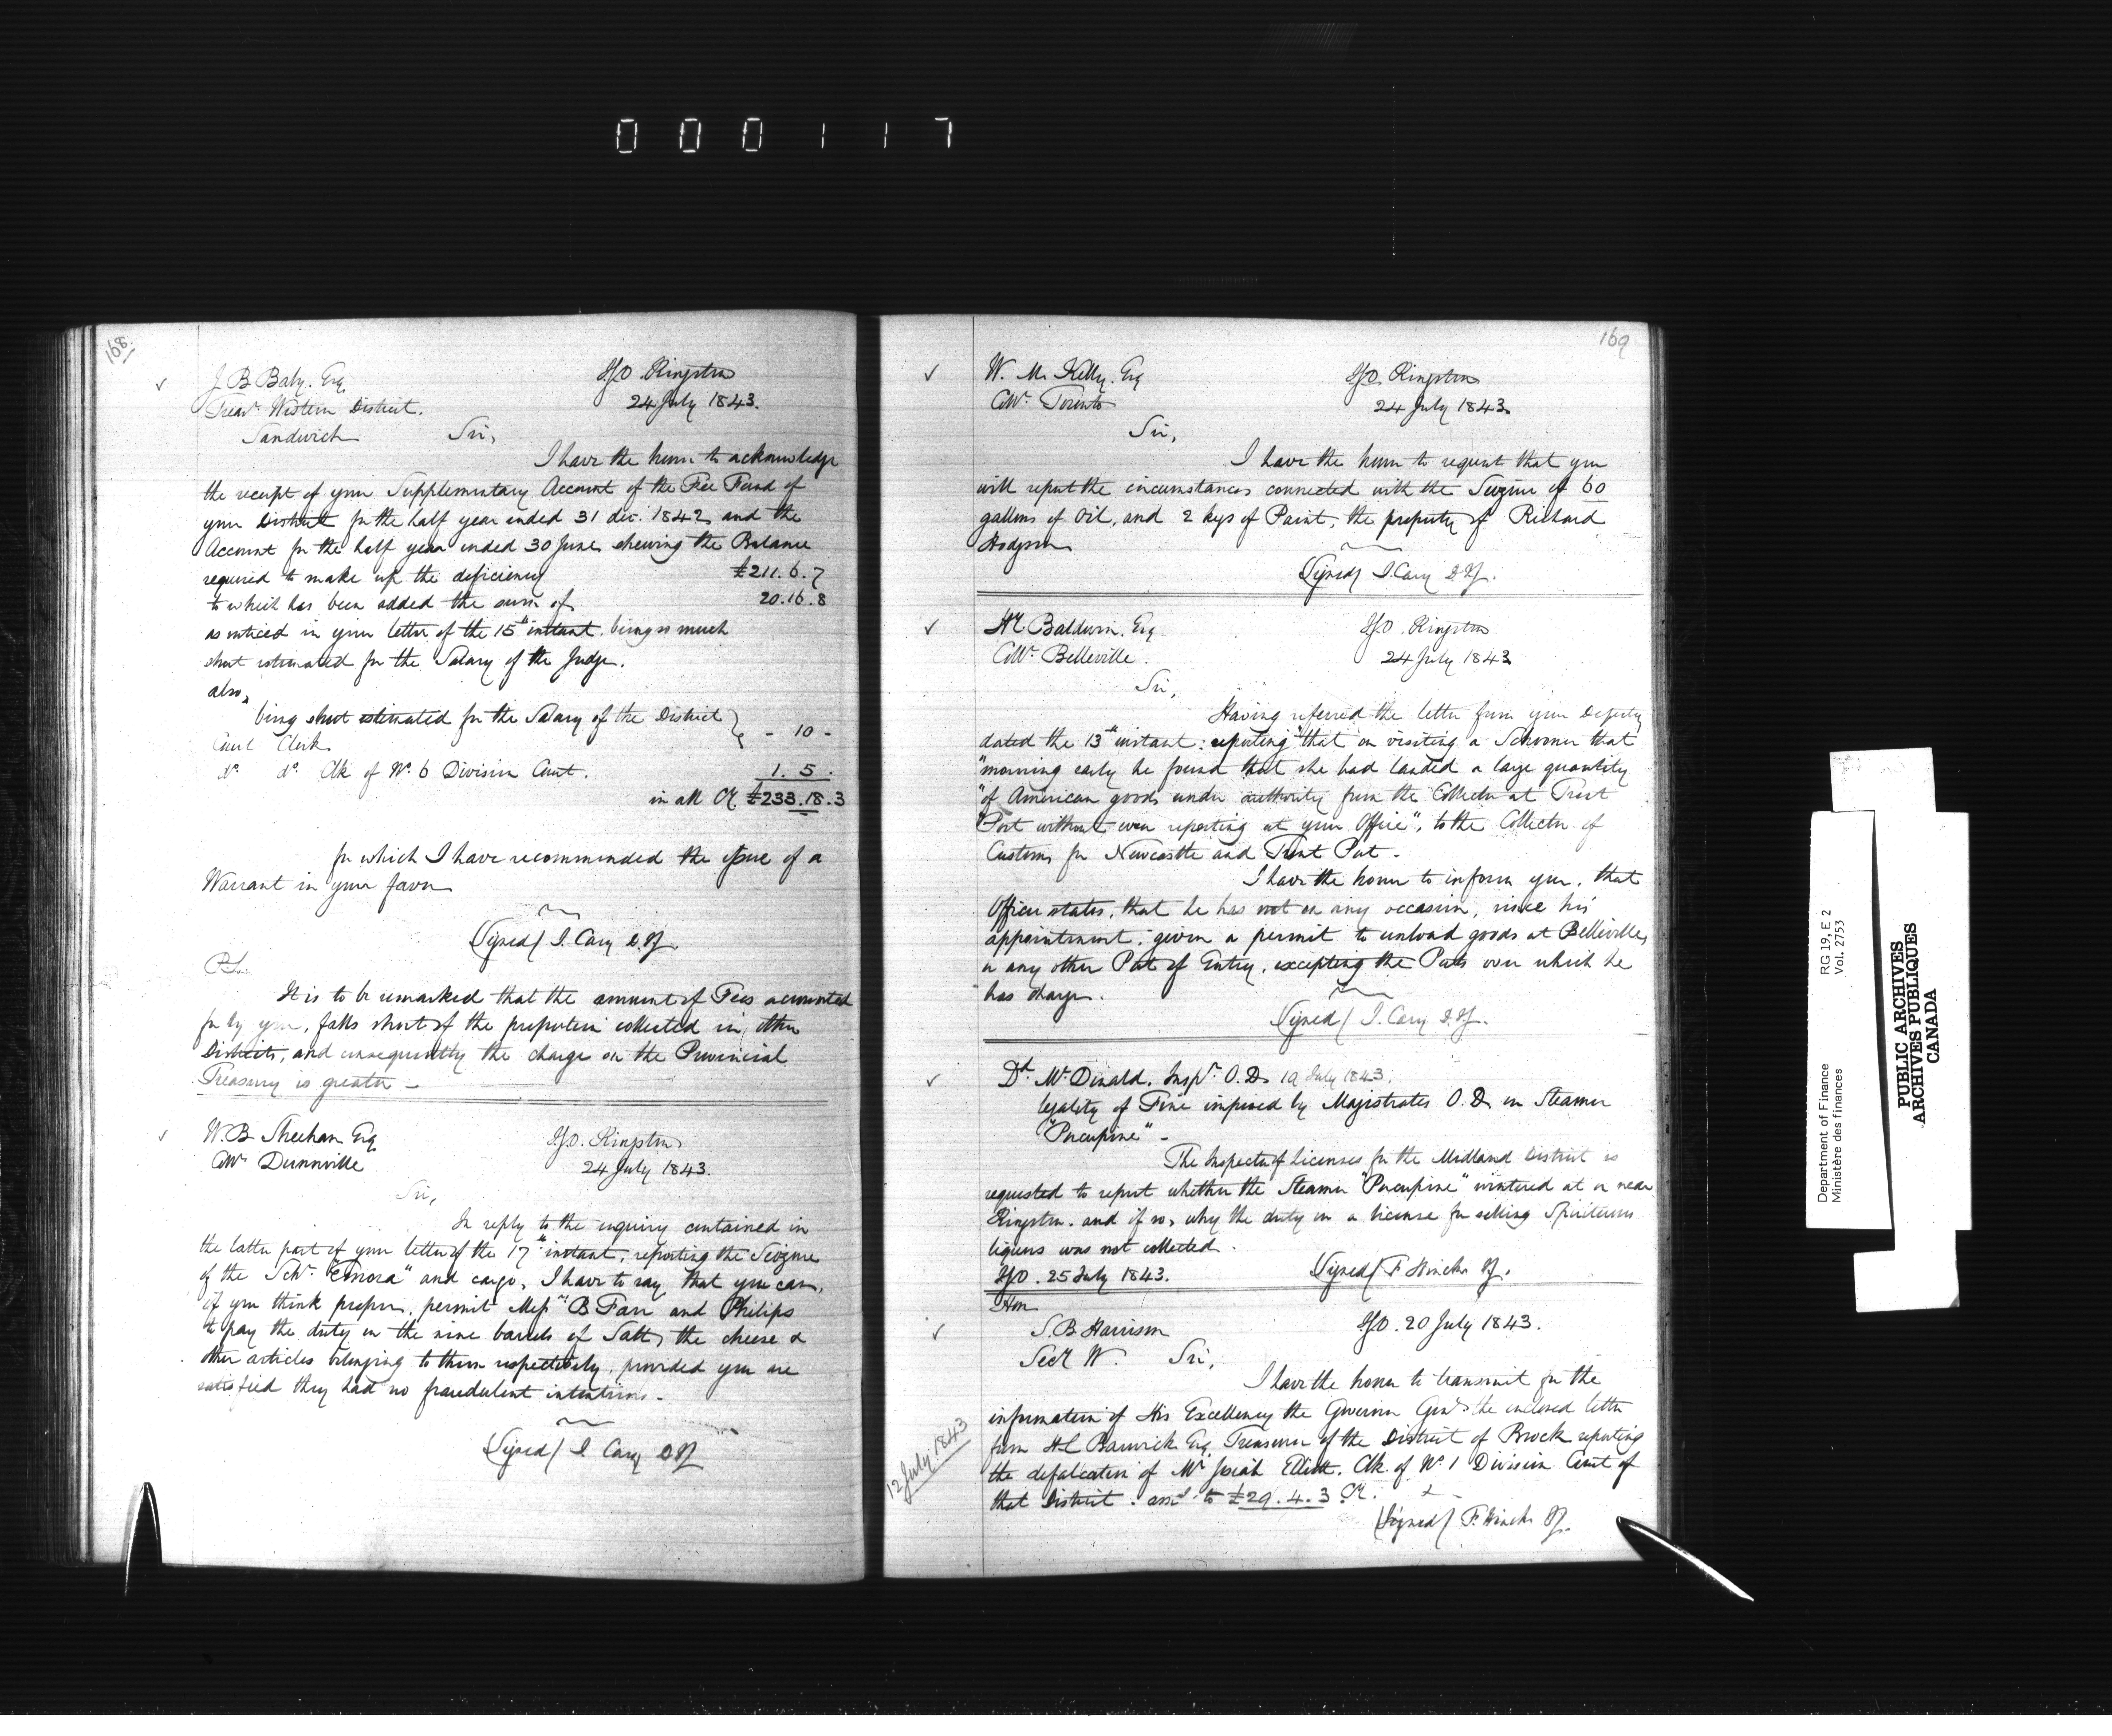 000117
168
J. B. Baby. Esq.
I.G.O. Kingston
24 July 1843.
Treasr. Western District.
Sandwich
Sir,
I have the honor to acknowledge
the receipt of your Supplementary Account of the Fee Fund of
your District for the half year ended 31 dec. 1842, and the
Account for the half year ended 30 June, shewing the Balance
required to make up the deficiency £211.6.7
to which has been added the sum of 20.16.8
as noticed in your letter of the 15th instant, being so much
short estimated for the Salary of the Judge.
also,
being short estimated for the Salary of the District
Court Clerk } - 10 -
do. do. Clk of No. 6 Division Court. 1. 5.
in all Cy. £233.18.3
for which I have recommended the issue of a
Warrant in your favor
(Signed) J. Cary D.I.G.
P.S.
It is to be remarked that the amount of Fees accounted
for by you, falls short of the proportion collected in other
Districts, and consequently the charge on the Provincial
Treasury is greater -
W. B. Sheehan Esq.
I.G.O. Kingston
Collr. Dunnville
24 July 1843.
Sir,
In reply to the enquiry contained in
the latter part of your letter of the 17th instant, reporting the Seizure
of the Schr. "Emora" and cargo, I have to say that you can,
if you think proper, permit Messrs. B Farr and Philips
to pay the duty on the nine barrels of Salt, the cheese &
other articles belonging to them respectively, provided you are
satisfied they had no fraudulent intentions.
(Signed) J. Cary D.I.G.
169
W. M. Kelly. Esq
I.G.O. Kingston
Collr. Toronto
24 July 1843.
Sir,
I have the honor to request that you
will report the circumstances connected with the Seizure of 60
gallons of Oil, and 2 kegs of Paint, the property of Richard
Hodgson
(Signed) J. Cary D.I.G.
H. Baldwin. Esq.
I.G.O. Kingston
Collr. Belleville.
24 July 1843
Sir,
Having referred the letter from your Deputy
dated the 13th instant: reporting "that on visiting a Schooner that
"morning early he found that she had landed a large quantity
"of American goods under authority from the Collector at Trent
"Port without even reporting at your Office", to the Collector of
Customs for Newcastle and Trent Port -
I have the honor to inform you, that
Officer states, that he has not on any occasion, since his
appointment, given a permit to unload goods at Belleville,
or any other Port of Entry, excepting the Ports over which he
has charge.
(Signed) J. Cary D.I.G.
Dd. McDonald. Inspr. O.D. 19 July 1843.
legality of Fine imposed by Magistrates O.D. on Steamer
"Porcupine" -
The Inspector of Licenses for the Midland District is
requested to report whether the Steamer "Porcupine" wintered at or near
Kingston, and if so, why the duty on a license for selling Spirituous
liquors was not collected.
I.G.O. 25 July 1843.
(Signed) F. Hincks I.G.
Hon
S. B. Harrison
I.G.O. 20 July 1843.
Secy W.
Sir,
I have the honor to transmit for the
information of His Excellency the Governor Genl. the enclosed letter
12 July. 1843
from H C Barwick Esq. Treasurer of the District of Brock reporting
the defalcation of Mr Josiah Elliott. Clk. of No. 1 Division Court of
that District. amt. to £29.4.3 Cy.
(Signed) F. Hincks I.G.
Department of Finance
Ministère des finances
RG 19, E 2
Vol. 2753
PUBLIC ARCHIVES
ARCHIVES PUBLIQUES
CANADA